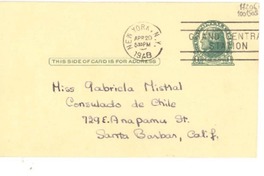 NEW YORK, N.Y.
APR 20
5:30 PM
1948
GRAND CENTRAL
STATION
THIS SIDE OF CARD IS FOR ADDRESS
Miss Gabriela Mistral
Consulado de Chile
729 E. Anapamu St.
Santa Barbar, Calif.